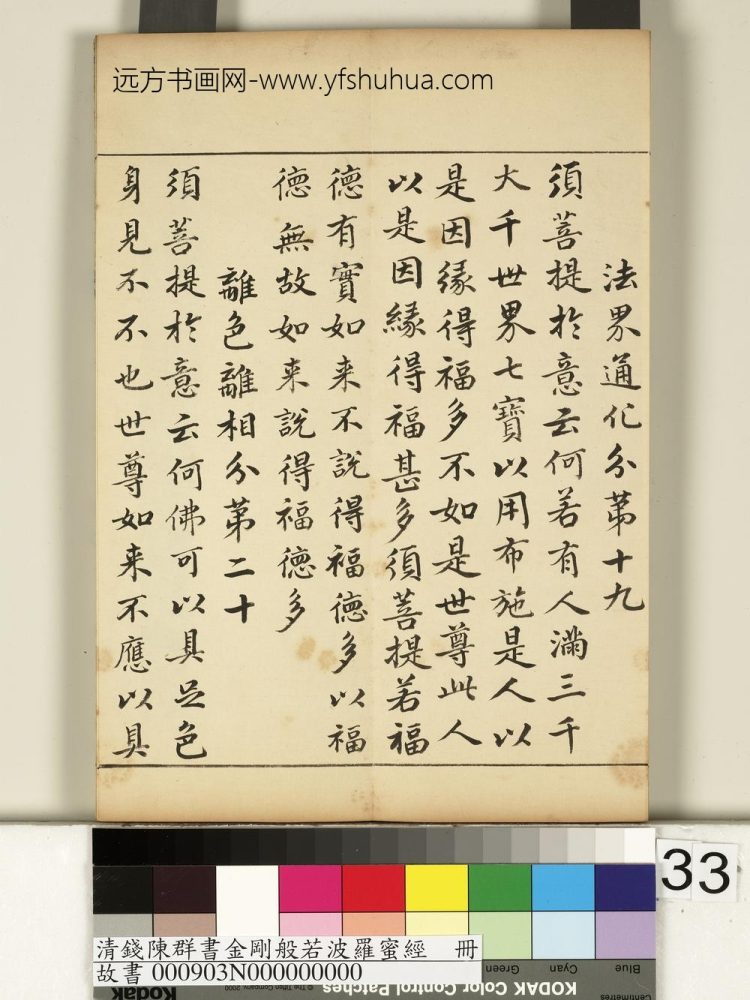 远方书画网-www.yfshuhua.com
法界通化分第十九
須菩提於意云何若有人滿三千
大千世界七寶以用布施是人以
是因緣得福多不如是世尊此人
以是因緣得福甚多須菩提若福
德有實如来不說得福德多以福
德無故如来說得福德多
離色離相分第二十
須菩提於意云何佛可以具足色
身見不不也世尊如来不應以具
33
清錢陳群書金剛般若波羅蜜經 冊
故書 000903N000000000
Kodak
© The Tiffen Company, 2000
KODAK Color Control Patches
Green
Cyan
Blue
Centimetres